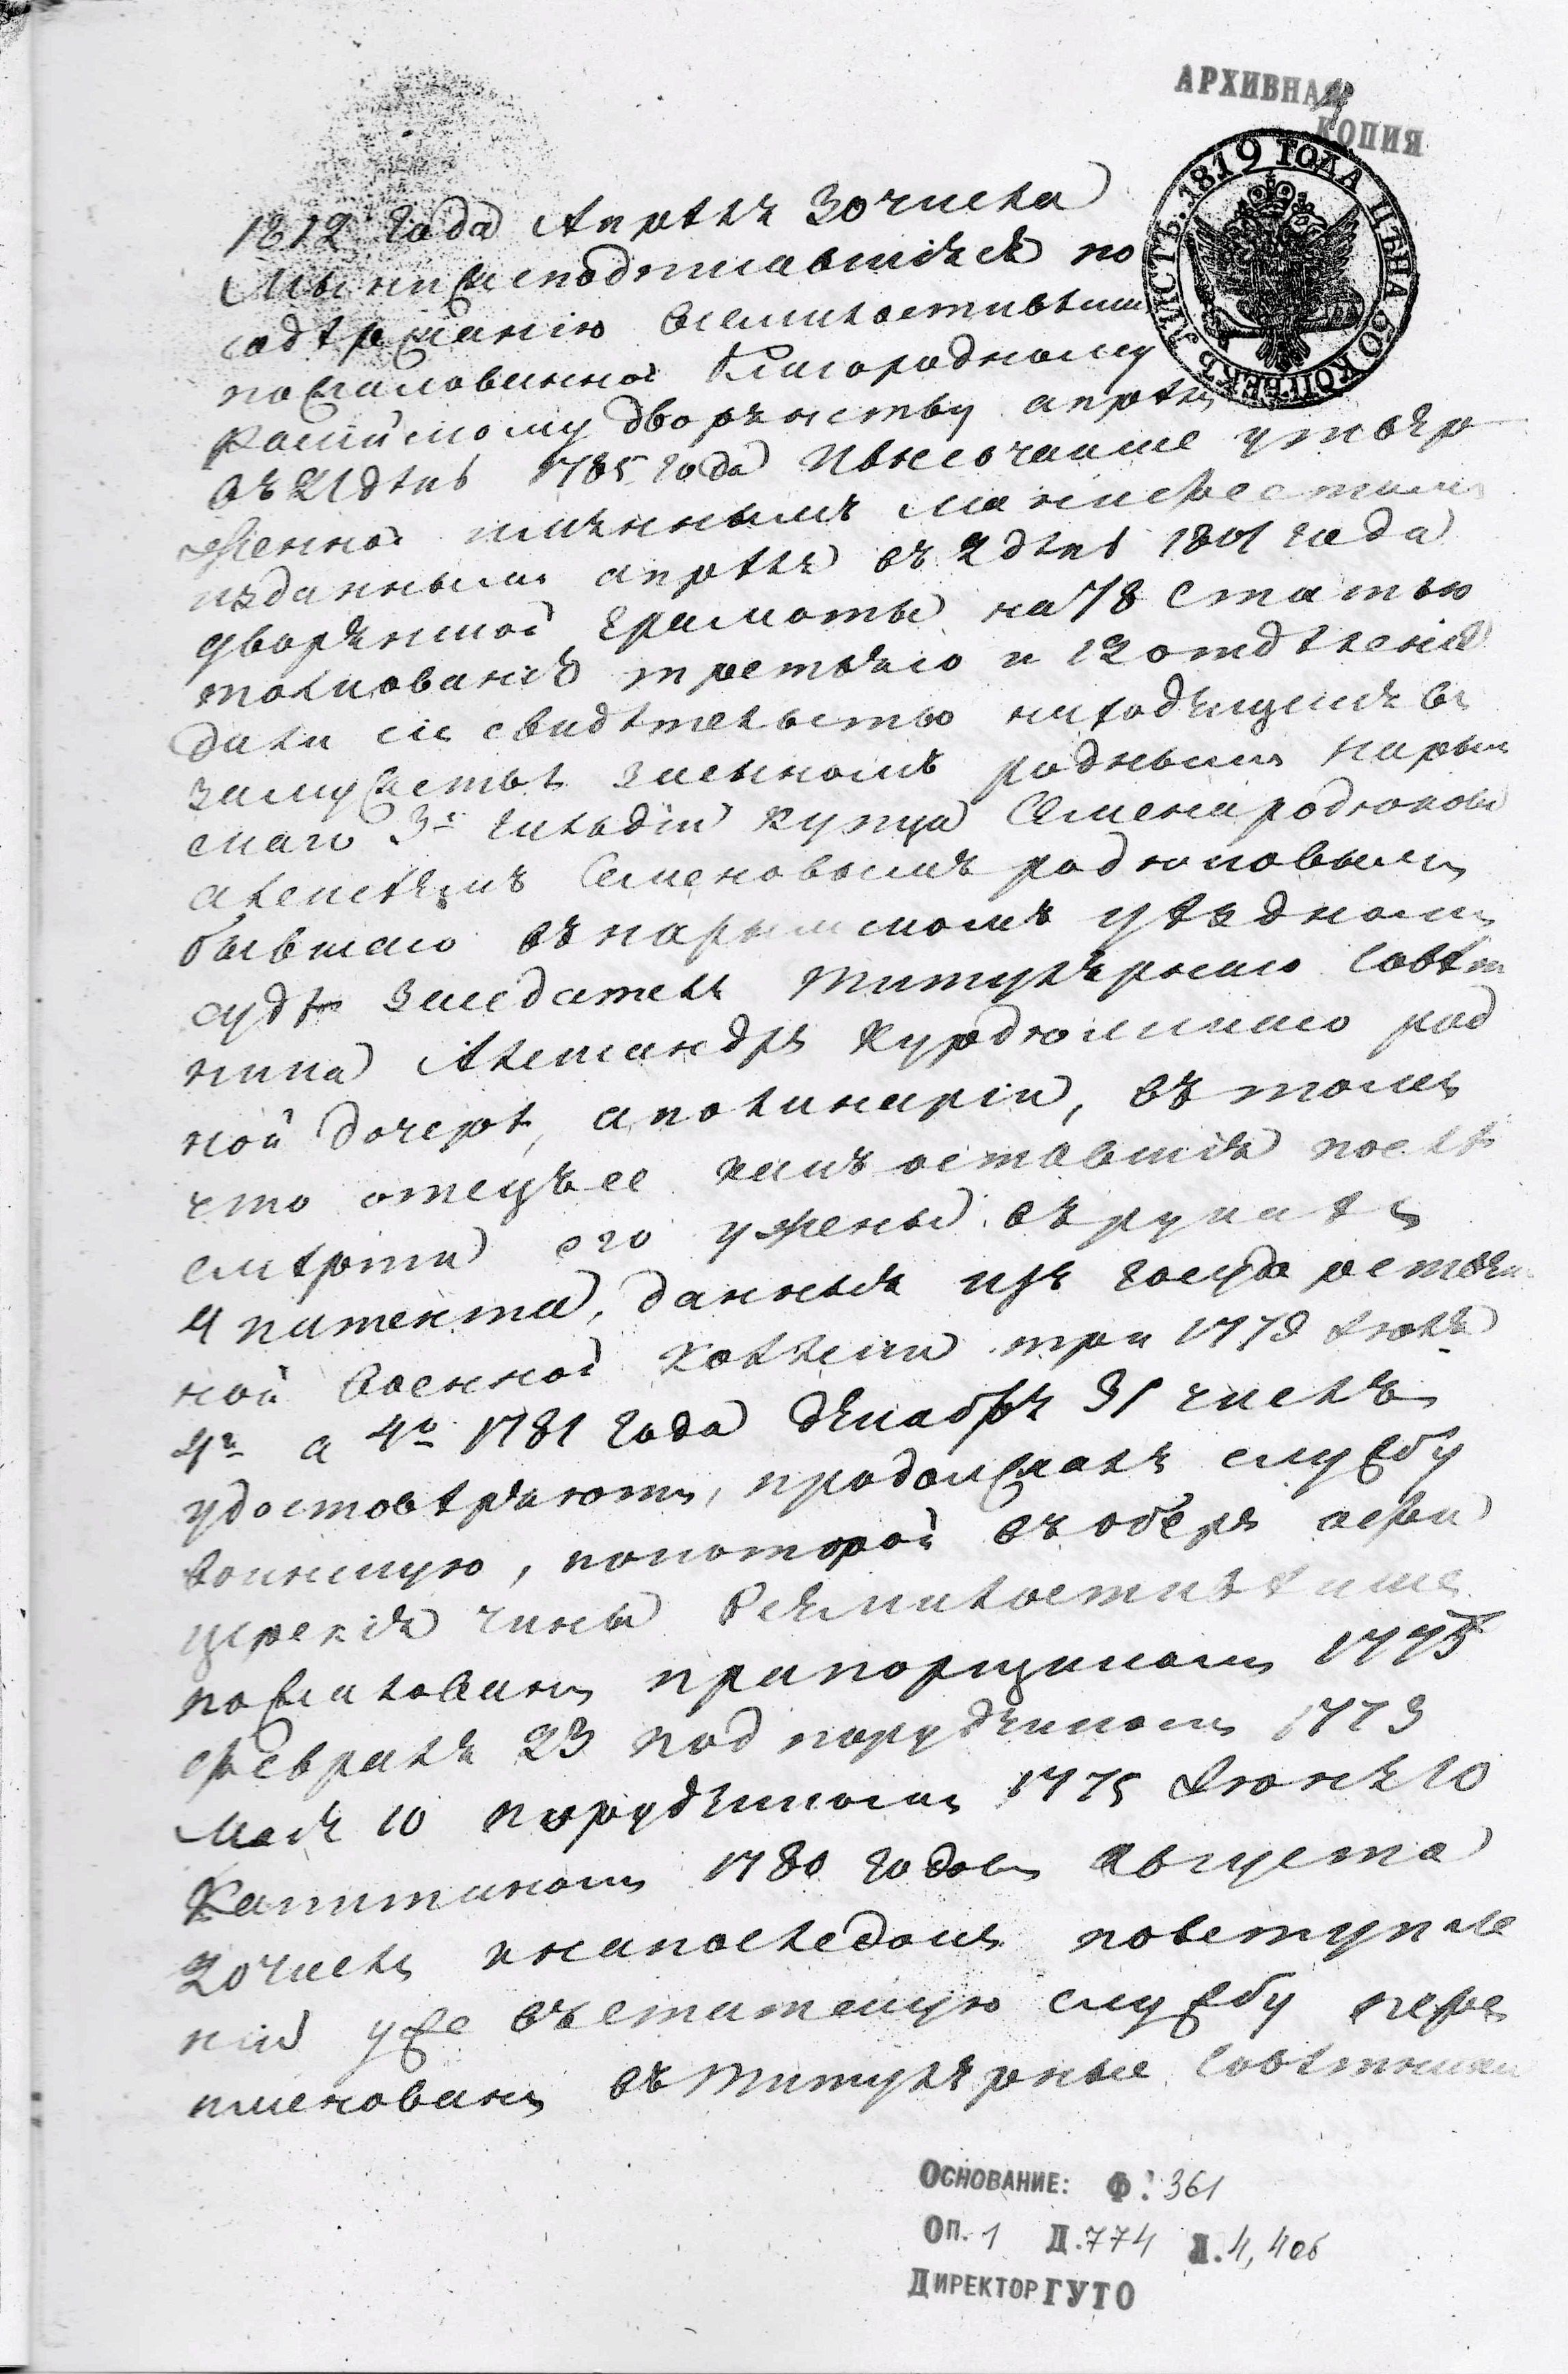 АРХИВНАЯ
КОПИЯ
ЛИСТЪ. 1819 ГОДА ЦѢНА 50 КОПѢЕКЪ
1812 года Апрѣля 30 числа
Мы нижеподписавшіяся по
содѣржанію всемилостивѣйше
пожалованной Благородному
Россійскому дворянству апрѣля
въ 21 день 1785 года И высочайше утвер
жденной имяннымъ манифестомъ
изданнымъ апрѣля въ 2 день 1801 года
дворянской грамоты на 78 статью
толкованія третьяго и 12 отдѣленія
дали сіе свидѣтельство находящейся въ
замужствѣ за сыномъ роднымъ Нарым
скаго 3й гильдіи купца Семена родюкова
алексѣемъ Семеновымъ родюковымъ
бывшаго въ нарымскомъ уѣздномъ
судѣ заседателя Титулярнаго Совѣт
ника Александра Курдюмскаго род
ной дочерѣ, аполинаріи, въ томъ
что отецъ ее какъ оставшія послѣ
смѣрти его у жены въ рукахъ
4 патента, данныя изъ государствен
ной Военной Коллегіи три 1778 Іюля
4го а 4й 1781 года Декабря 31 числъ
удостовѣряютъ, продолжалъ службу
воинскую, по которой въ оберъ офи
церскія чины Всемилостивѣйше
пожалованъ прапорщикомъ 1775
февраля 23 подпорудчикомъ 1773
Маія 10 порудчикомъ 1775 Іюня 10
Капитаномъ 1780 годовъ Августа
20 числъ и напоследокъ по вступле
ніи уже въ статскую службу пере
именованъ въ Титулярные Совѣтники
ОСНОВАНИЕ: Ф. 361
ОП. 1 Д. 774 Л. 4, 4об
ДИРЕКТОР ГУТО